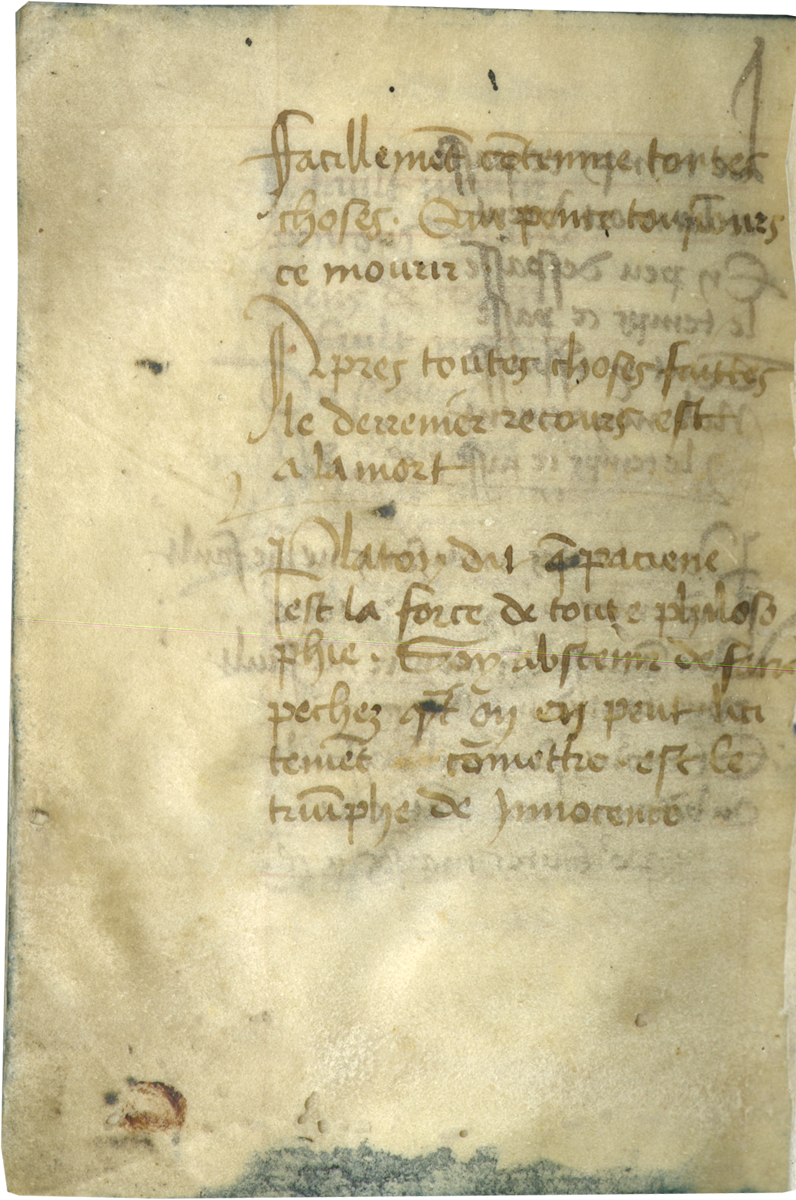 Facillemēt cōtempne toutes
choses. Qui pense tousiours
ce mourir
Apres toutes choses faittes
le derrenier recours est
a la mort
Platon dit q̄ pacience
est la force de toute philoso
phie. Soy abstenir de faire
pechez qāt on en peut lici
temēt cōmettre est le
triūphe de Innocence